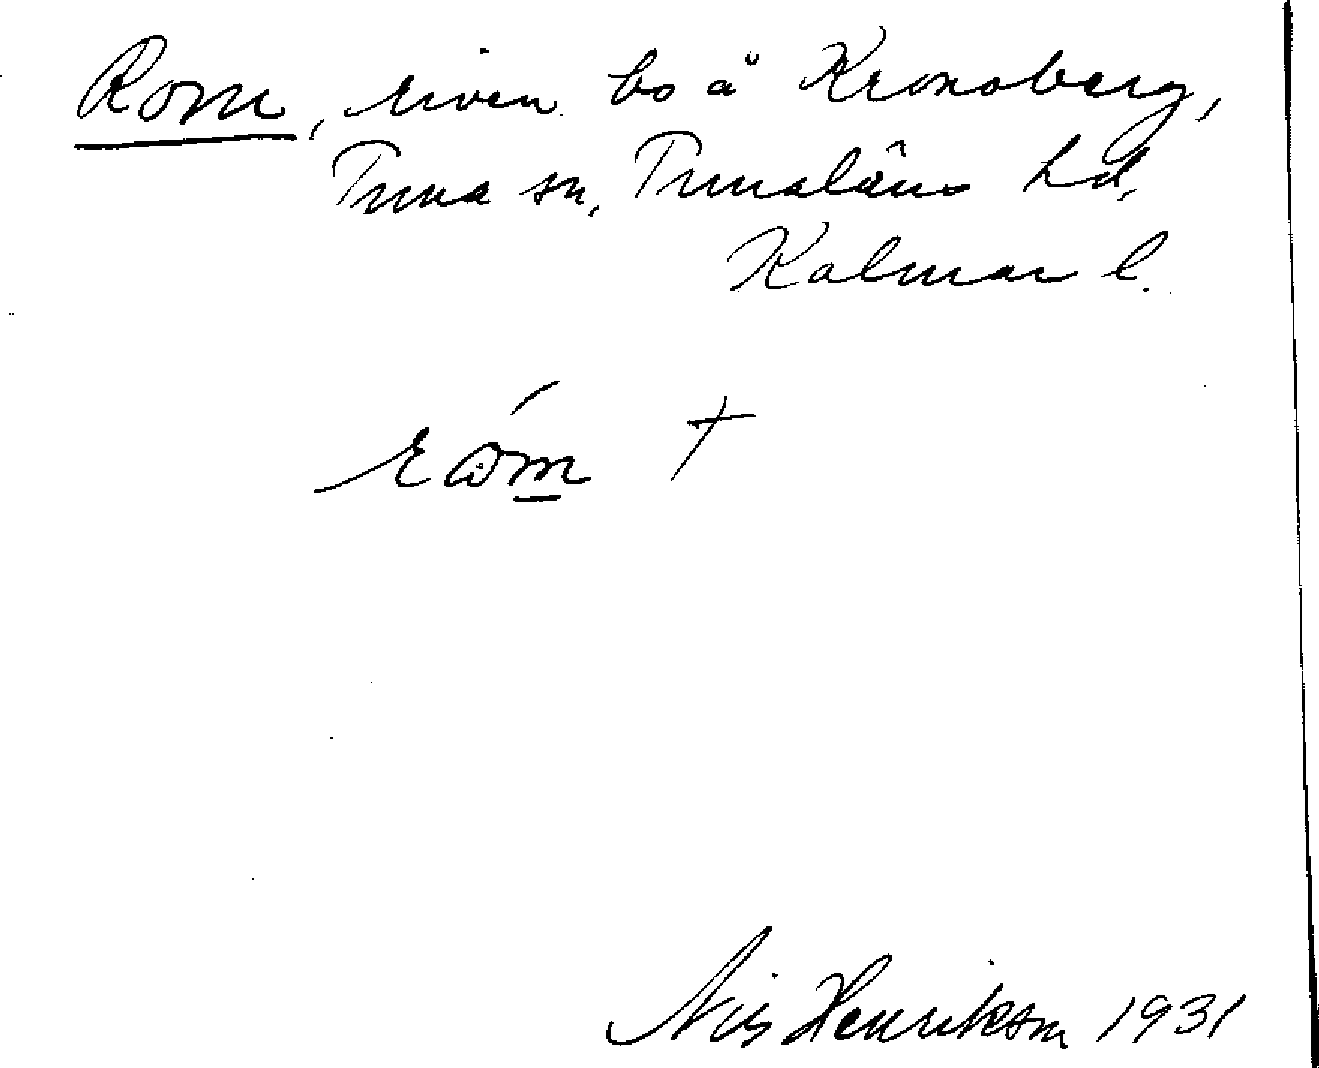 Rom, riven bo å Kronoberg,
Tuna sn, Tunaläns hd,
Kalmar l.
†
Nils Henrikson 1931